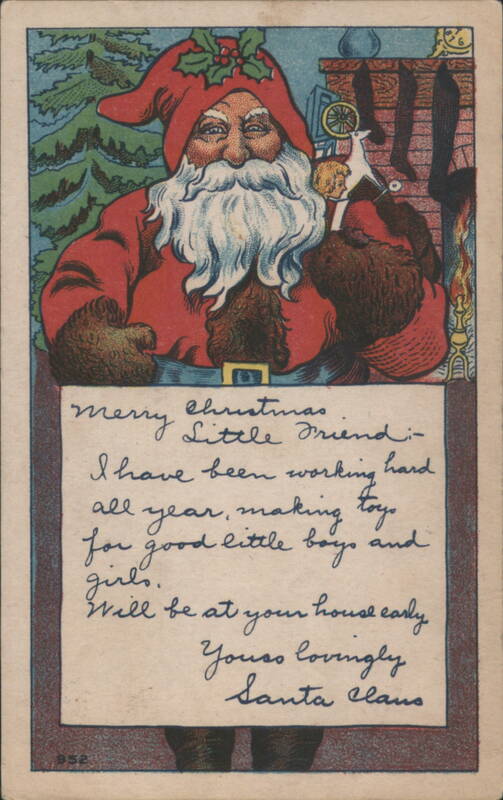 Merry Christmas
Little Friend:-
I have been working hard
all year, making toys
for good little boys and
girls.
Will be at your house early
Yours lovingly
Santa Claus
852